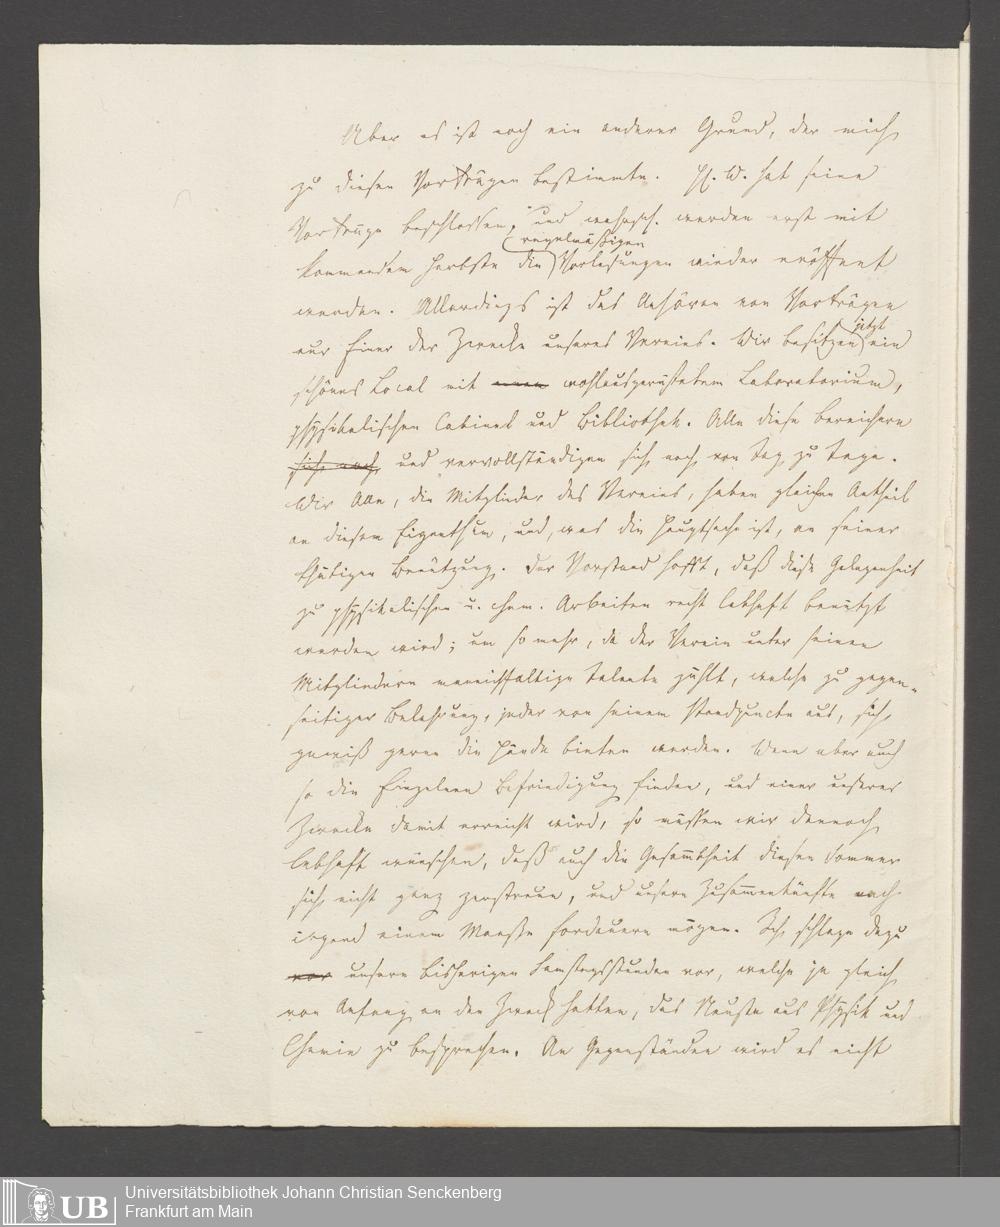 Aber es ist noch ein anderer Grund, der mich
zu diesen Vorträgen bestimmte. H. W. hat seine
Vorträge beschlossen, und wahrsch. werden erst mit
regelmäßigen
kommendem Herbste die Vorlesungen wieder eröffnet
werden. Allerdings ist das Anhören von Vorträgen
jetzt
nur Einer der Zwecke unseres Vereins. Wir besitzen ein
schönes Local mit wohlausgerüstetem Laboratorium,
physikalischen Cabinet und Bibliothek. Alle diese bereichern
sich noch und vervollständigen sich noch von Tag zu Tage.
Wir Alle, die Mitglieder des Vereins, haben gleichen Antheil
an diesem Eigenthum, und, was die Hauptsache ist, an seiner
thätigen Benützung. Der Vorstand hofft, daß diese Gelegenheit
zu physikalischen u. chem. Arbeiten recht lebhaft benützt
werden wird; um so mehr, da der Verein unter seinen
Mitgliedern mannichfaltige Talente zählt, welche zu gegen-
seitiger Belehrung, jeder von seinem Standpuncte aus, sich
gewiß gerne die Hände bieten werden. Wenn aber auch
so die Einzelnen Befriedigung finden, und einer unserer
Zwecke damit erreicht wird, so müssen wir dennoch
lebhaft wünschen, daß auch die Gesammtheit diesen Sommer
sich nicht ganz zerstreue, und unsere Zusammenkünfte nach
irgend einem Maaße fordauern mögen. Ich schlage dazu
vor unsere bisherigen Samstagsstunden vor, welche ja gleich
von Anfang an den Zweck hatten, das Neuste aus Physik und
Chemie zu besprechen. An Gegenständen wird es nicht
UB
Universitätsbibliothek Johann Christian Senckenberg
Frankfurt am Main